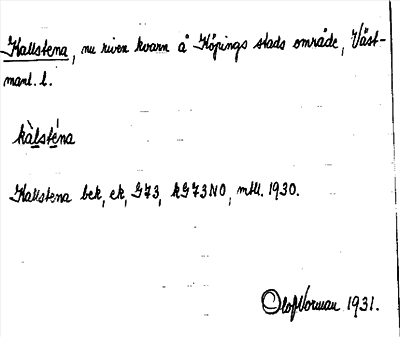 Kallstena, nu riven kvarn å Köpings stads område, Väst-
manl. l.
kàlsténa
Kallstena bek, ek, G73, kG73NO, mtll. 1930.
Olof Norman 1931.